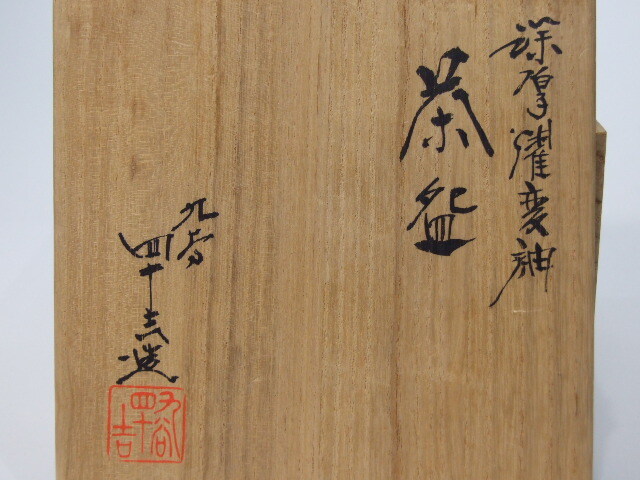 深厚燿変釉
茶盌
九谷
四十吉造
九谷
四十吉